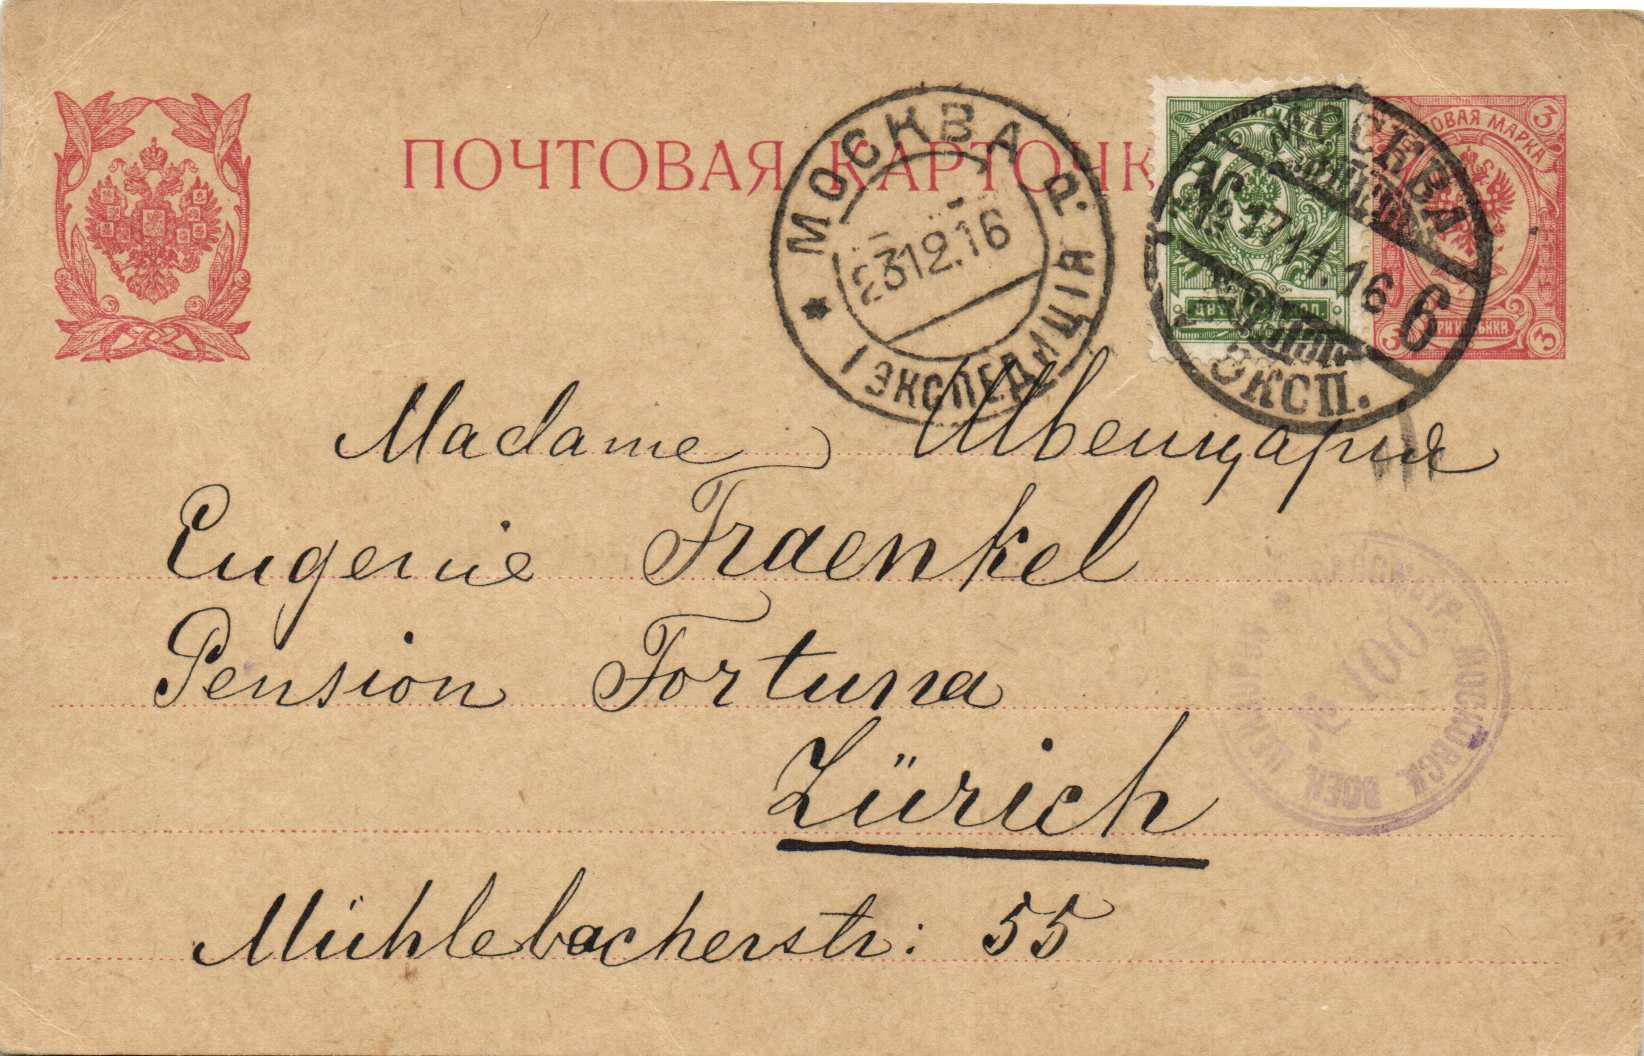 ПОЧТОВАЯ КАРТОЧК
МОСКВА Р.
23 12.16
1 ЭКСПЕДИЦІЯ
МОСКВА
№ 17 11.16 6
ЭКСП.
ОВАЯ МАРКА
3
3 ТРИ КОПѢЙКИ 3
ДВѢ КОП.
Madame Швейцарія
Eugenie Fraenkel
Pension Fortuna
Zürich
Mühlebacherstr: 55
МОСКОВСК. ВОЕН. ЦЕНЗУРОЙ
№ 100